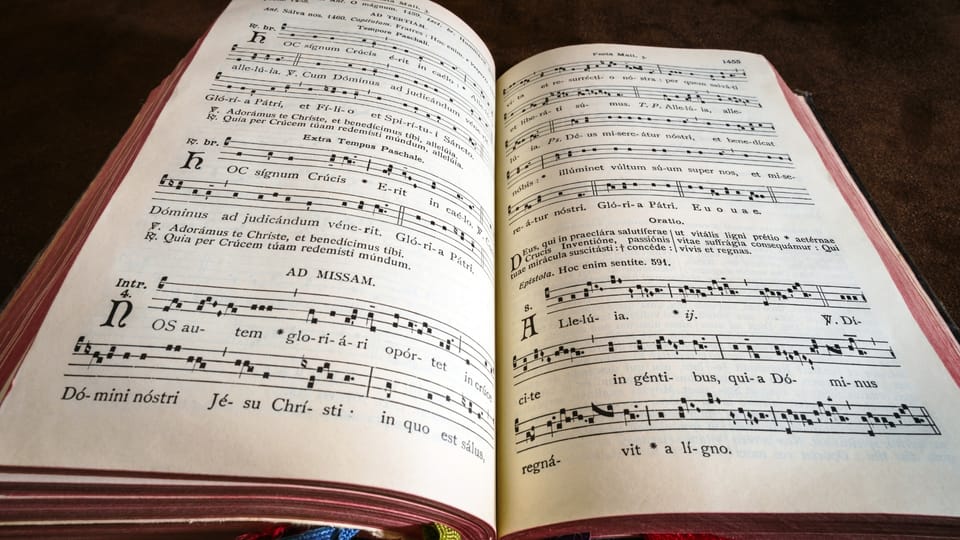 Festa Maii. 3.
Ant. O mágnum. 1459.
Ant. Sálva nos. 1460. Capitulum. Fratres : Hoc enim
AD TERTIAM.
Tempore Paschali.
℟. br.
HOC sígnum Crúcis é-rit in caélo *
alle-lú-ia. ℣. Cum Dóminus ad judicándum vé-
Gló-ri-a Pátri, et Fí-li-o et Spi-rí-tu-i Sáncto.
℣. Adorámus te Christe, et benedícimus tibi, allelúia.
℟. Quia per Crúcem túam redemísti múndum, allelúia.
Extra Tempus Paschale.
℟. br.
HOC sígnum Crúcis * E-rit in caé-lo.
Dóminus ad judicándum véne-rit. Gló-ri-a Pátri.
℣. Adorámus te Christe, et benedícimus tibi.
℟. Quía per Crúcem túam redemísti múndum.
AD MISSAM.
Intr.
4.
NOS au- tem * glo-ri-á-ri opór- tet in crúce
Dó-mini nóstri Jé- su Chrí- sti : in quo est sálus,
Festa Maii. 3. 1455
ví-ta et re- surrécti- o nó-stra : per quem salvá-ti
et libe-rá-ti sú- mus. T. P. Alle-lú-ia, alle-
lú- ia. Ps. Dé-us mi-sere-átur nóstri, et bene-dícat
nóbis : * illúminet vúltum sú-um super nos, et mi-se-
re-á-tur nóstri. Gló-ri-a Pátri. E u o u a e.
Oratio.
DEus, qui in praeclára salutíferae Crucis Inventióne, passiónis tuae mirácula suscitásti : † concéde : ut vitális ligni prétio * aetérnae vitae suffrágia consequámur : Qui vivis et regnas.
Epístola. Hoc enim sentíte. 591.
8.
ALle-lú- ia. * ij. ℣. Dí-
ci-te in génti- bus, qui-a Dó- mi-nus
regná- vit * a lí-gno.